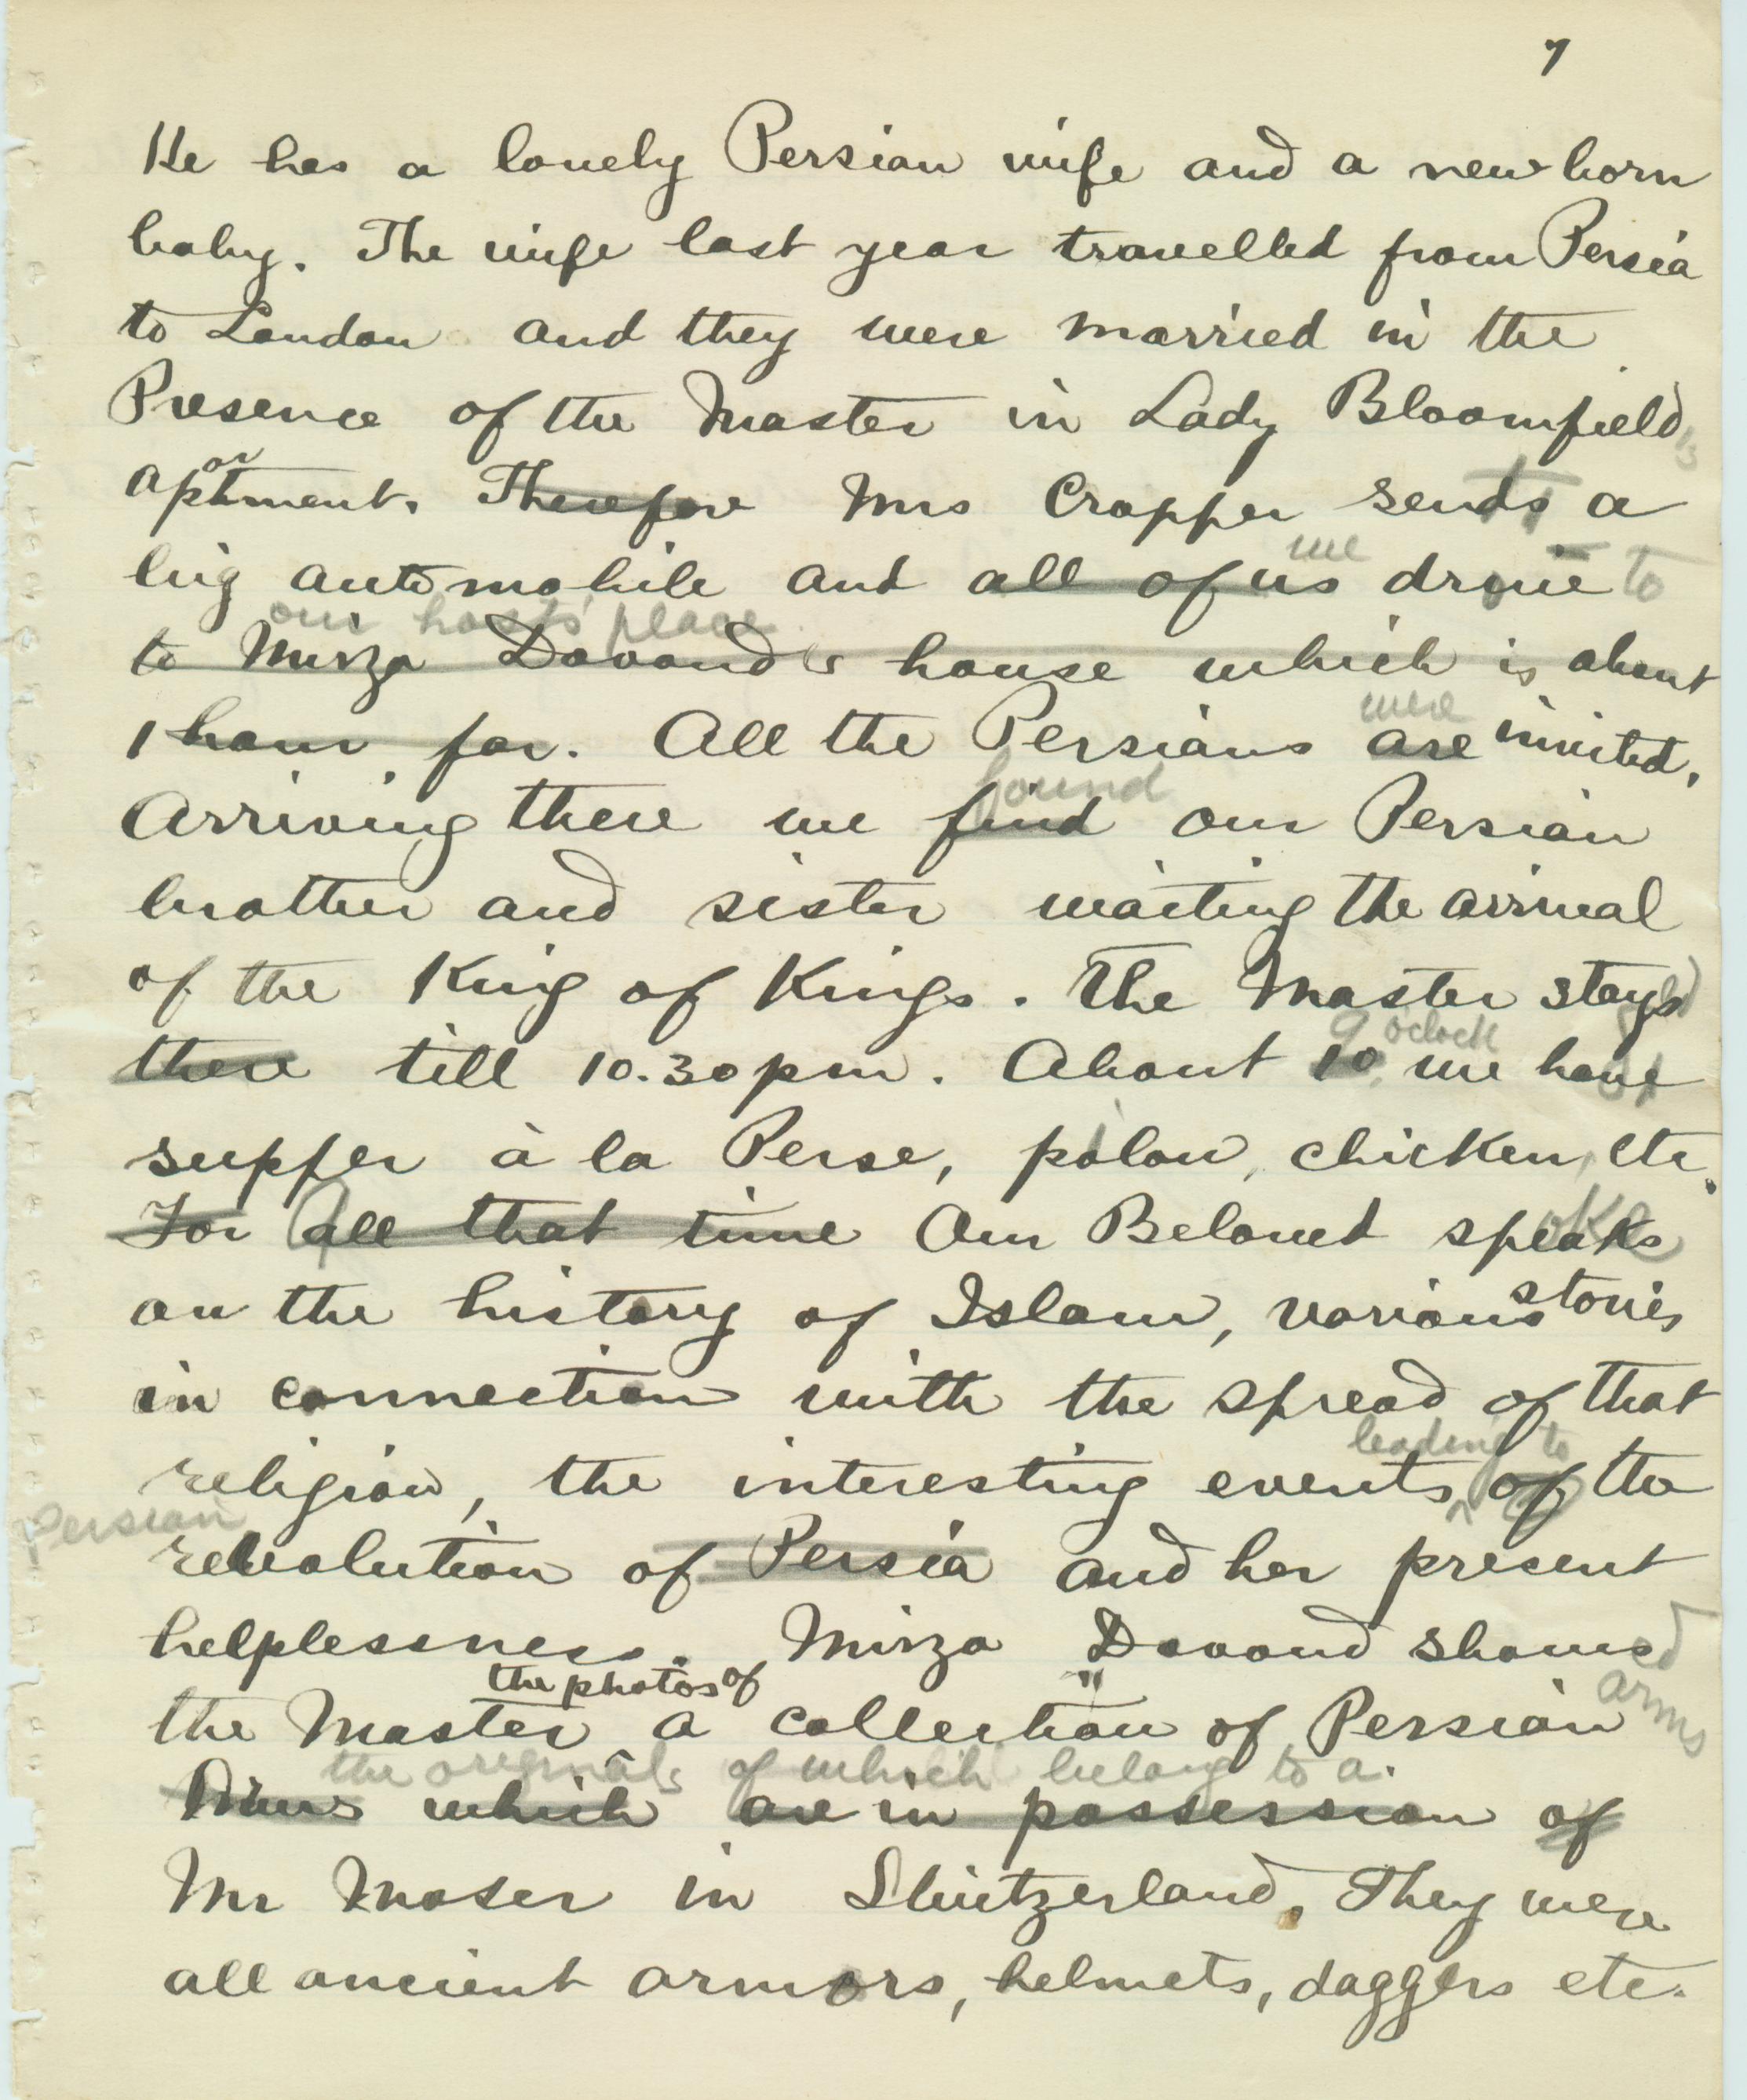 7
He has a lovely Persian wife and a new born
baby. The wife last year travelled from Persia
to London and they were married in the
Presence of the Master in Lady Bloomfield's
ar
aptment. Therefore Mrs Cropper sends a
we
big automobile and all of us drove to
our hosts' place
to Mirza Davoud's house which is about
were
1 hour far. All the Persians are invited.
found
Arriving there we find our Persian
brother and sister waiting the arrival
of the King of Kings. The Master stays
9 o'clock
there till 10.30 pm. About 10 we have
supper à la Perse, polow, chicken, etc.
For all that time Our Beloved speaks
on the history of Islam, various stories
in connection with the spread of that
leading to
religion, the interesting events of the
Persian
revolution of Persia and her present
helplessness. Mirza Davoud showed
the photos of
the Master a collection of Persian arms
the originals of which belong to a
Arms which are in possession of
Mr Moser in Switzerland. They were
all ancient armors, helmets, daggers etc.